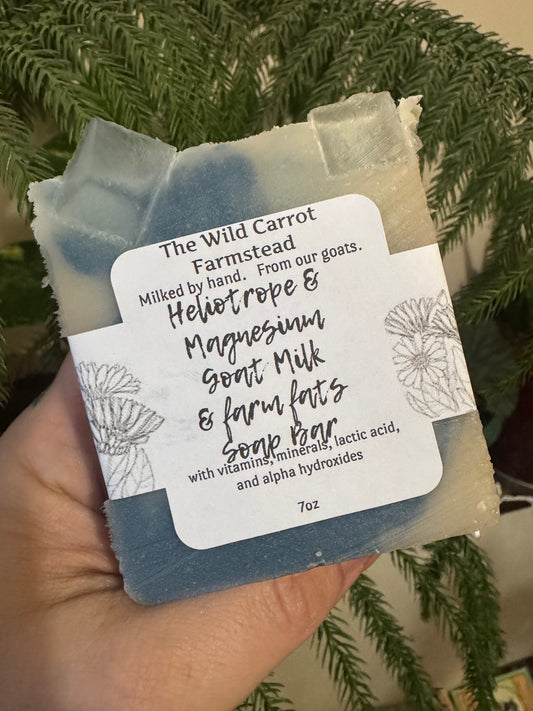 The Wild Carrot
Farmstead
Milked by hand. From our goats.
Heliotrope &
Magnesium
Goat Milk
& farm fats
Soap Bar
with vitamins, minerals, lactic acid,
and alpha hydroxides
7oz